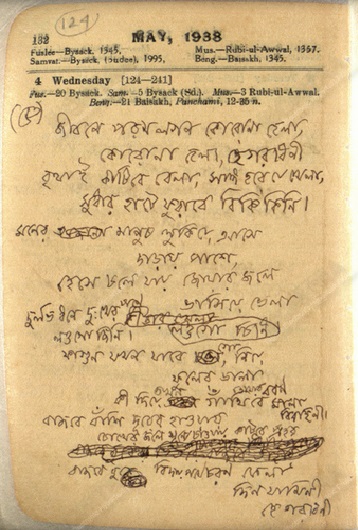 (124)
132 MAY, 1938
Fuslee—Bysack, 1345. Mus.—Rubi-ul-Awwal, 1357.
Samvat.—Bysack, (Sudee), 1995, Beng.—Baisakh, 1345.
4 Wednesday [124—241]
Fus.—20 Bysack. Sam.—5 Bysack (Sd.). Mus.—3 Rubi-ul-Awwal.
Beng.—21 Baisakh, Panchami, 12-25 n.
জীবনে পরম লগন কোরোনা হেলা,
কোরোনা হেলা, হে গরবিনী
বৃথাই কাটিবে বেলা, সাঙ্গ হবে যে খেলা,
সুধার হাটে ফুরাবে বিকিকিনি।
মনের মানুষ লুকিয়ে আসে
দাঁড়ায় পাশে,
হেসে চলে যায় জোয়ার জলে
ভাসিয়ে ভেলা
দুর্লভ ধনে দুঃখের পণে
লওগো জিনি।
ফাগুন যখন যাবে গো নিয়ে
ফুলের ডালা
কী দিয়ে তখন গাঁথিবে তোমার বরণ
মালা বিরহিণী।
বাজবে বাঁশি দূরের হাওয়ায়
চোখের জলে শূন্যে চাওয়ায় কাটবে প্রহর
বাজবে বুকে বিদায় পথের চরণ ফেলা
দিন যামিনী
হে গরবিনী